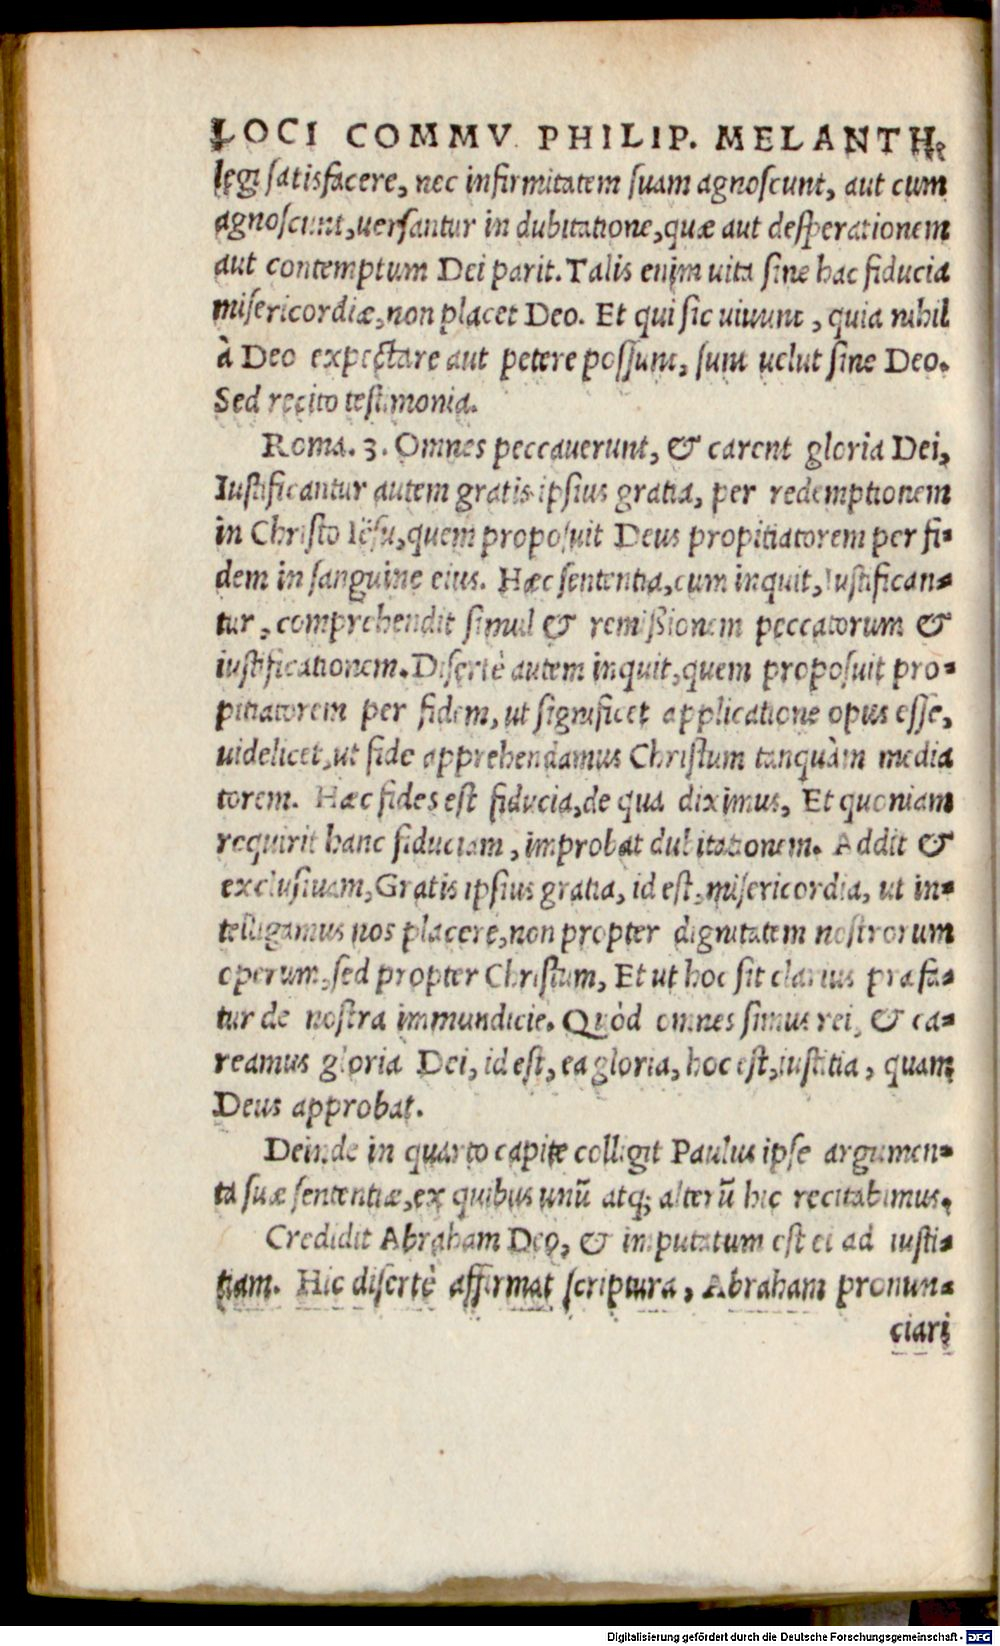 LOCI COMMV PHILIP. MELANTH.
legi satisfacere, nec infirmitatem suam agnoscunt, aut cum
agnoscunt, uersantur in dubitatione, quæ aut desperationem
aut contemptum Dei parit. Talis enim uita sine hac fiducia
misericordiæ, non placet Deo. Et qui sic uiuunt, quia nihil
à Deo expectare aut petere possunt, sunt uelut sine Deo.
Sed recito testimonia.
Roma. 3. Omnes peccauerunt, & carent gloria Dei,
Iustificantur autem gratis ipsius gratia, per redemptionem
in Christo Iësu, quem proposuit Deus propitiatorem per fi-
dem in sanguine eius. Hæc sententia, cum inquit, Iustifican-
tur, comprehendit simul & remißionem peccatorum &
iustificationem. Disertè autem inquit, quem proposuit pro-
pitiatorem per fidem, ut significet applicatione opus esse,
uidelicet, ut fide apprehendamus Christum tanquàm media
torem. Hæc fides est fiducia, de qua diximus, Et quoniam
requirit hanc fiduciam, improbat dubitationem. Addit &
exclusiuam, Gratis ipsius gratia, id est, misericordia, ut in-
telligamus nos placere, non propter dignitatem nostrorum
operum, sed propter Christum, Et ut hoc sit clarius præfa-
tur de nostra immundicie. Quòd omnes simus rei, & ca-
reamus gloria Dei, id est, ea gloria, hoc est, iustitia, quam
Deus approbat.
Deinde in quarto capite colligit Paulus ipse argumen-
ta suæ sententiæ, ex quibus unū atq; alterū hic recitabimus.
Credidit Abraham Deo, & imputatum est ei ad iusti-
tiam. Hic disertè affirmat scriptura, Abraham pronun-
ciari
Digitalisierung gefördert durch die Deutsche Forschungsgemeinschaft - DFG